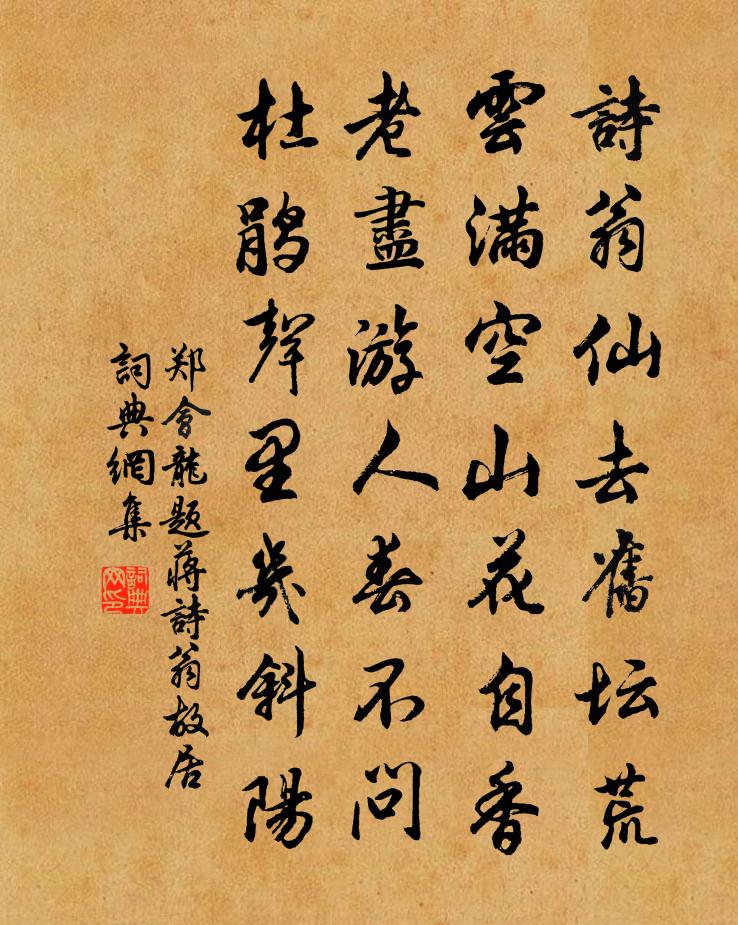 詩翁仙去舊坛荒
雲滿空山花自香
老盡游人春不問
杜鹃聲里幾斜陽
郑會龍题蔣詩翁故居
詞典網集
詞典網印